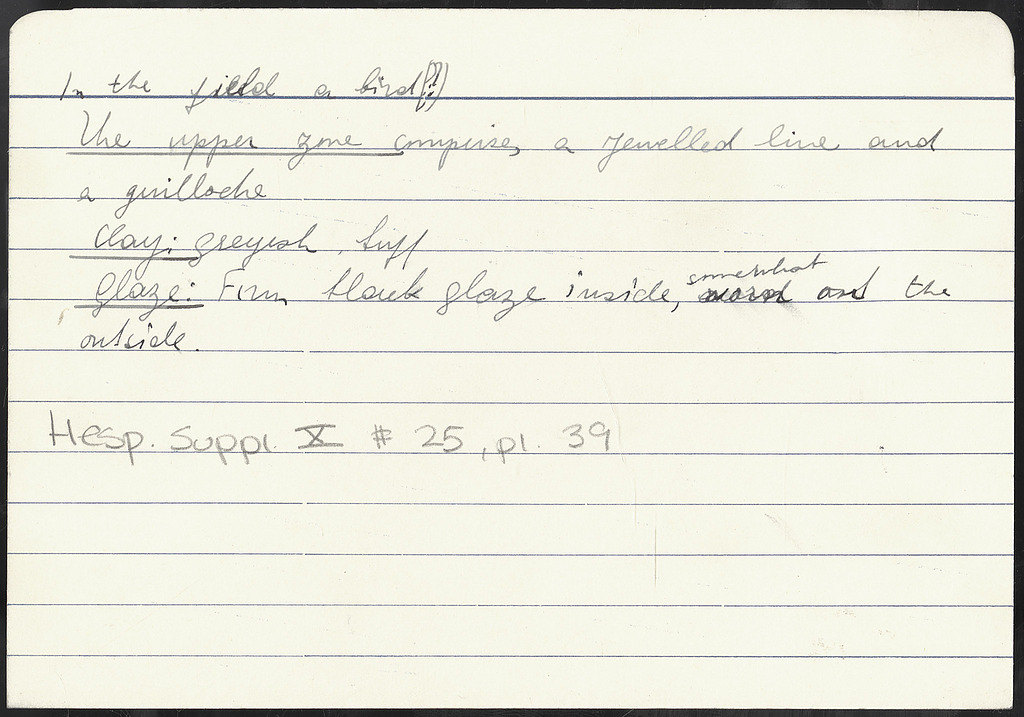 In the field a bird(?!)
The upper zone comprises a jewelled line and
a guilloche
Clay: greyish, buff
Glaze: Firm black glaze inside, somewhat worn on the
outside.
Hesp. Suppl. X # 25, pl. 39